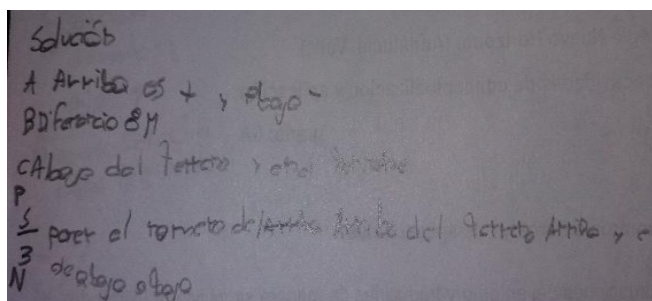 Solución
A Arriba es + y Abajo -
B Diferencia 8M
C Abajo del terreno y en el
P
5
3 poner el del Arriba del terreno Arriba y e
N de abajo abajo